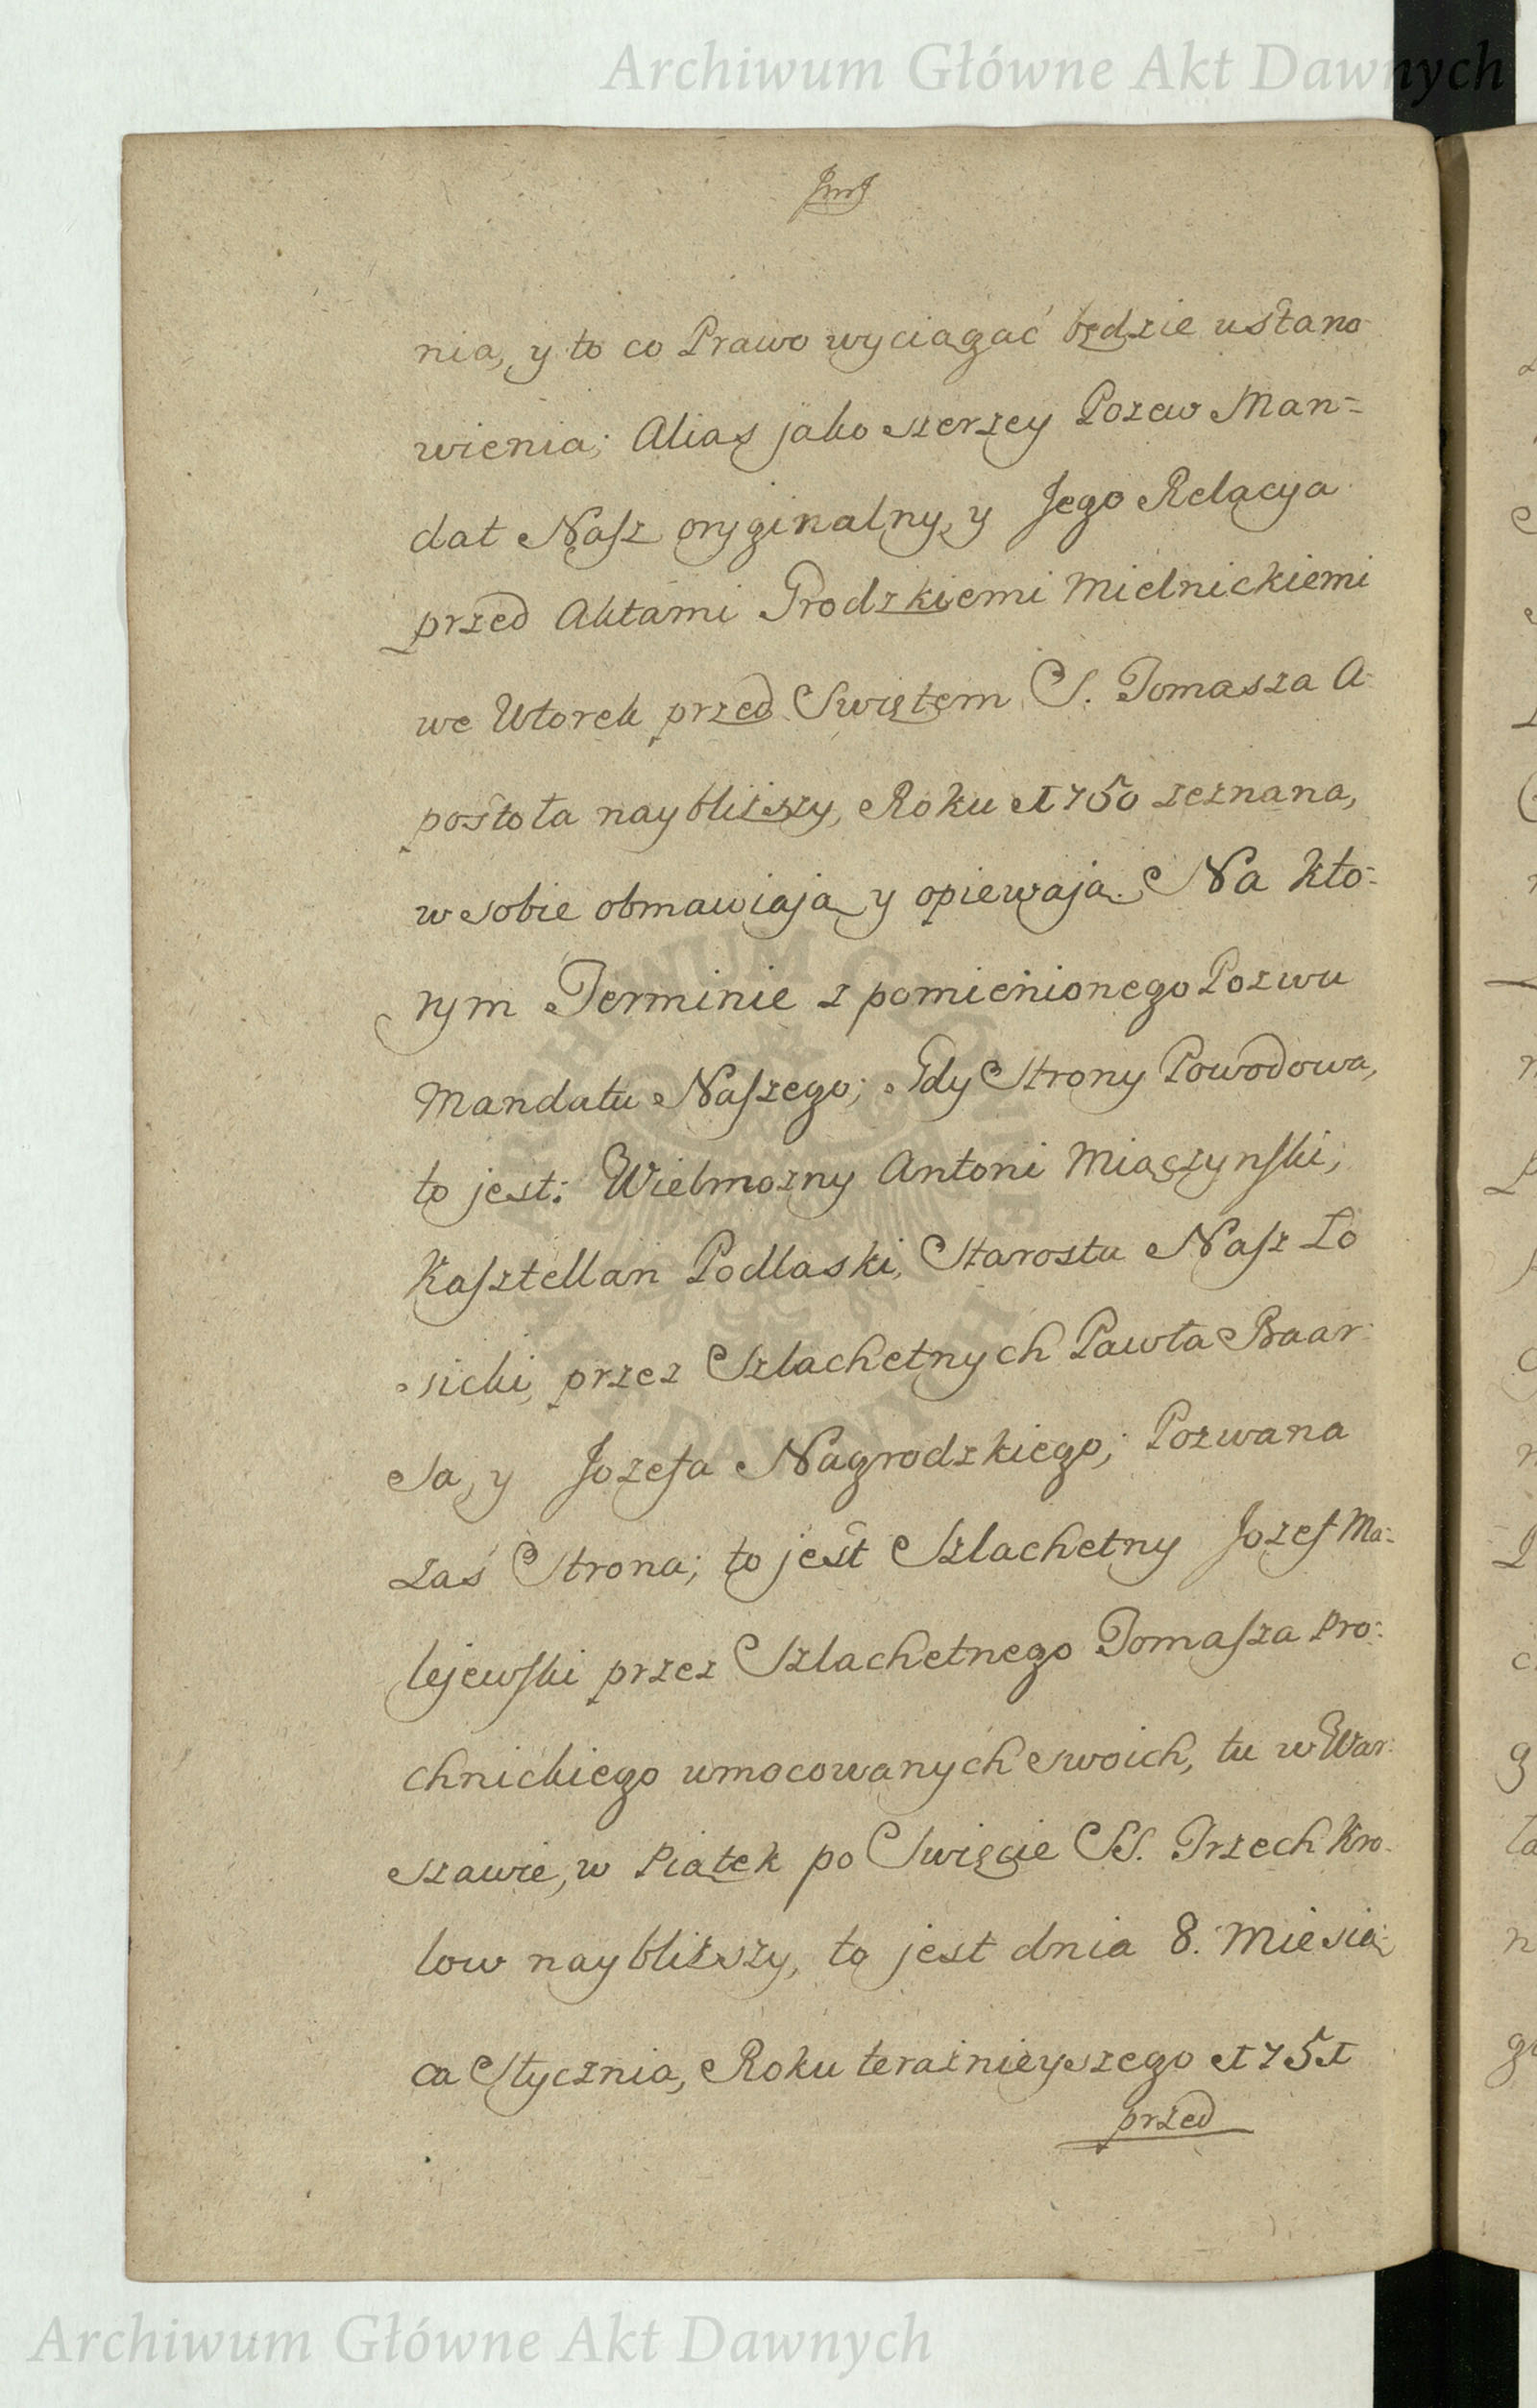 Archiwum Główne Akt Dawnych
nia, y to co Prawo wyciągać będzie ustano-
wienia; Alias jako szerzey Pozew Man=
dat Nasz oryginalny, y Jego Relacya
przed Aktami Grodzkiemi Mielnickiemi
we Wtorek przed Swiętem S. Tomasza A-
postoła naybliższy, Roku 1750 zeznana,
w sobie obmawiają y opiewają. Na kto-
rym Terminie z pomienionego Pozwu
Mandatu Naszego; Gdy Strony Powodowa,
to jest: Wielmozny Antoni Miączynski,
Kasztellan Podlaski, Starosta Nasz Lo
sicki, przez Szlachetnych Pawła Baar-
sa, y Jozefa Nagrodzkiego; Pozwana
zaś Strona; to jest Szlachetny Jozef Ma-
lejewski przez Szlachetnego Tomasza Pro-
chnickiego umocowanych swoich, tu w War-
szawie, w Piątek po Swięcie SS. Trzech Kro-
low naybliższy, to jest dnia 8. Miesią-
ca Stycznia, Roku teraznieyszego 1751
przed
Archiwum Główne Akt Dawnych